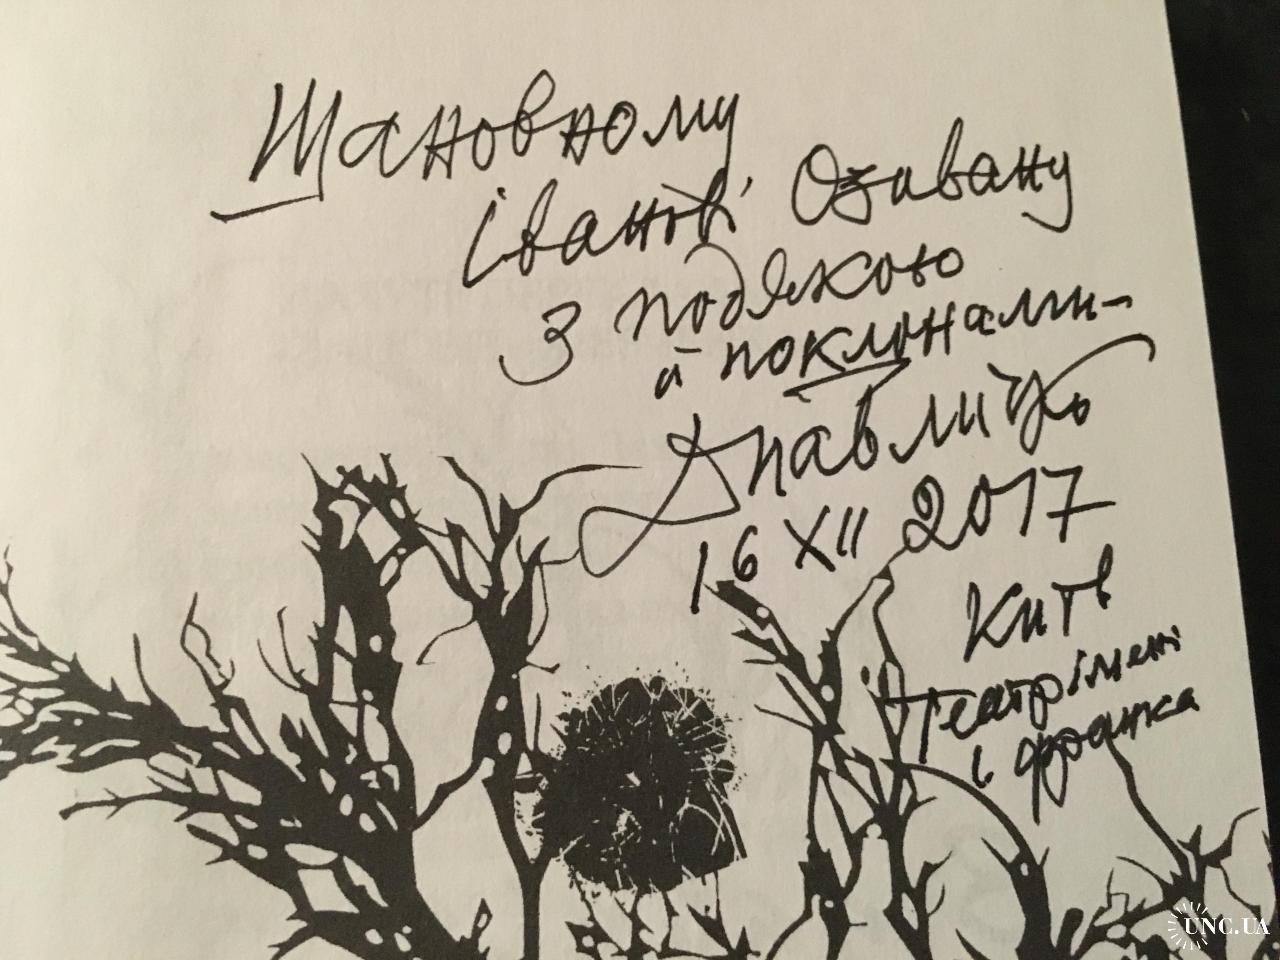 Шановному
Іванові Озивану
з подякою
й поклонами–
Д Павличко
16 XII 2017
Київ
Театр імені
І Франка
UNC.UA